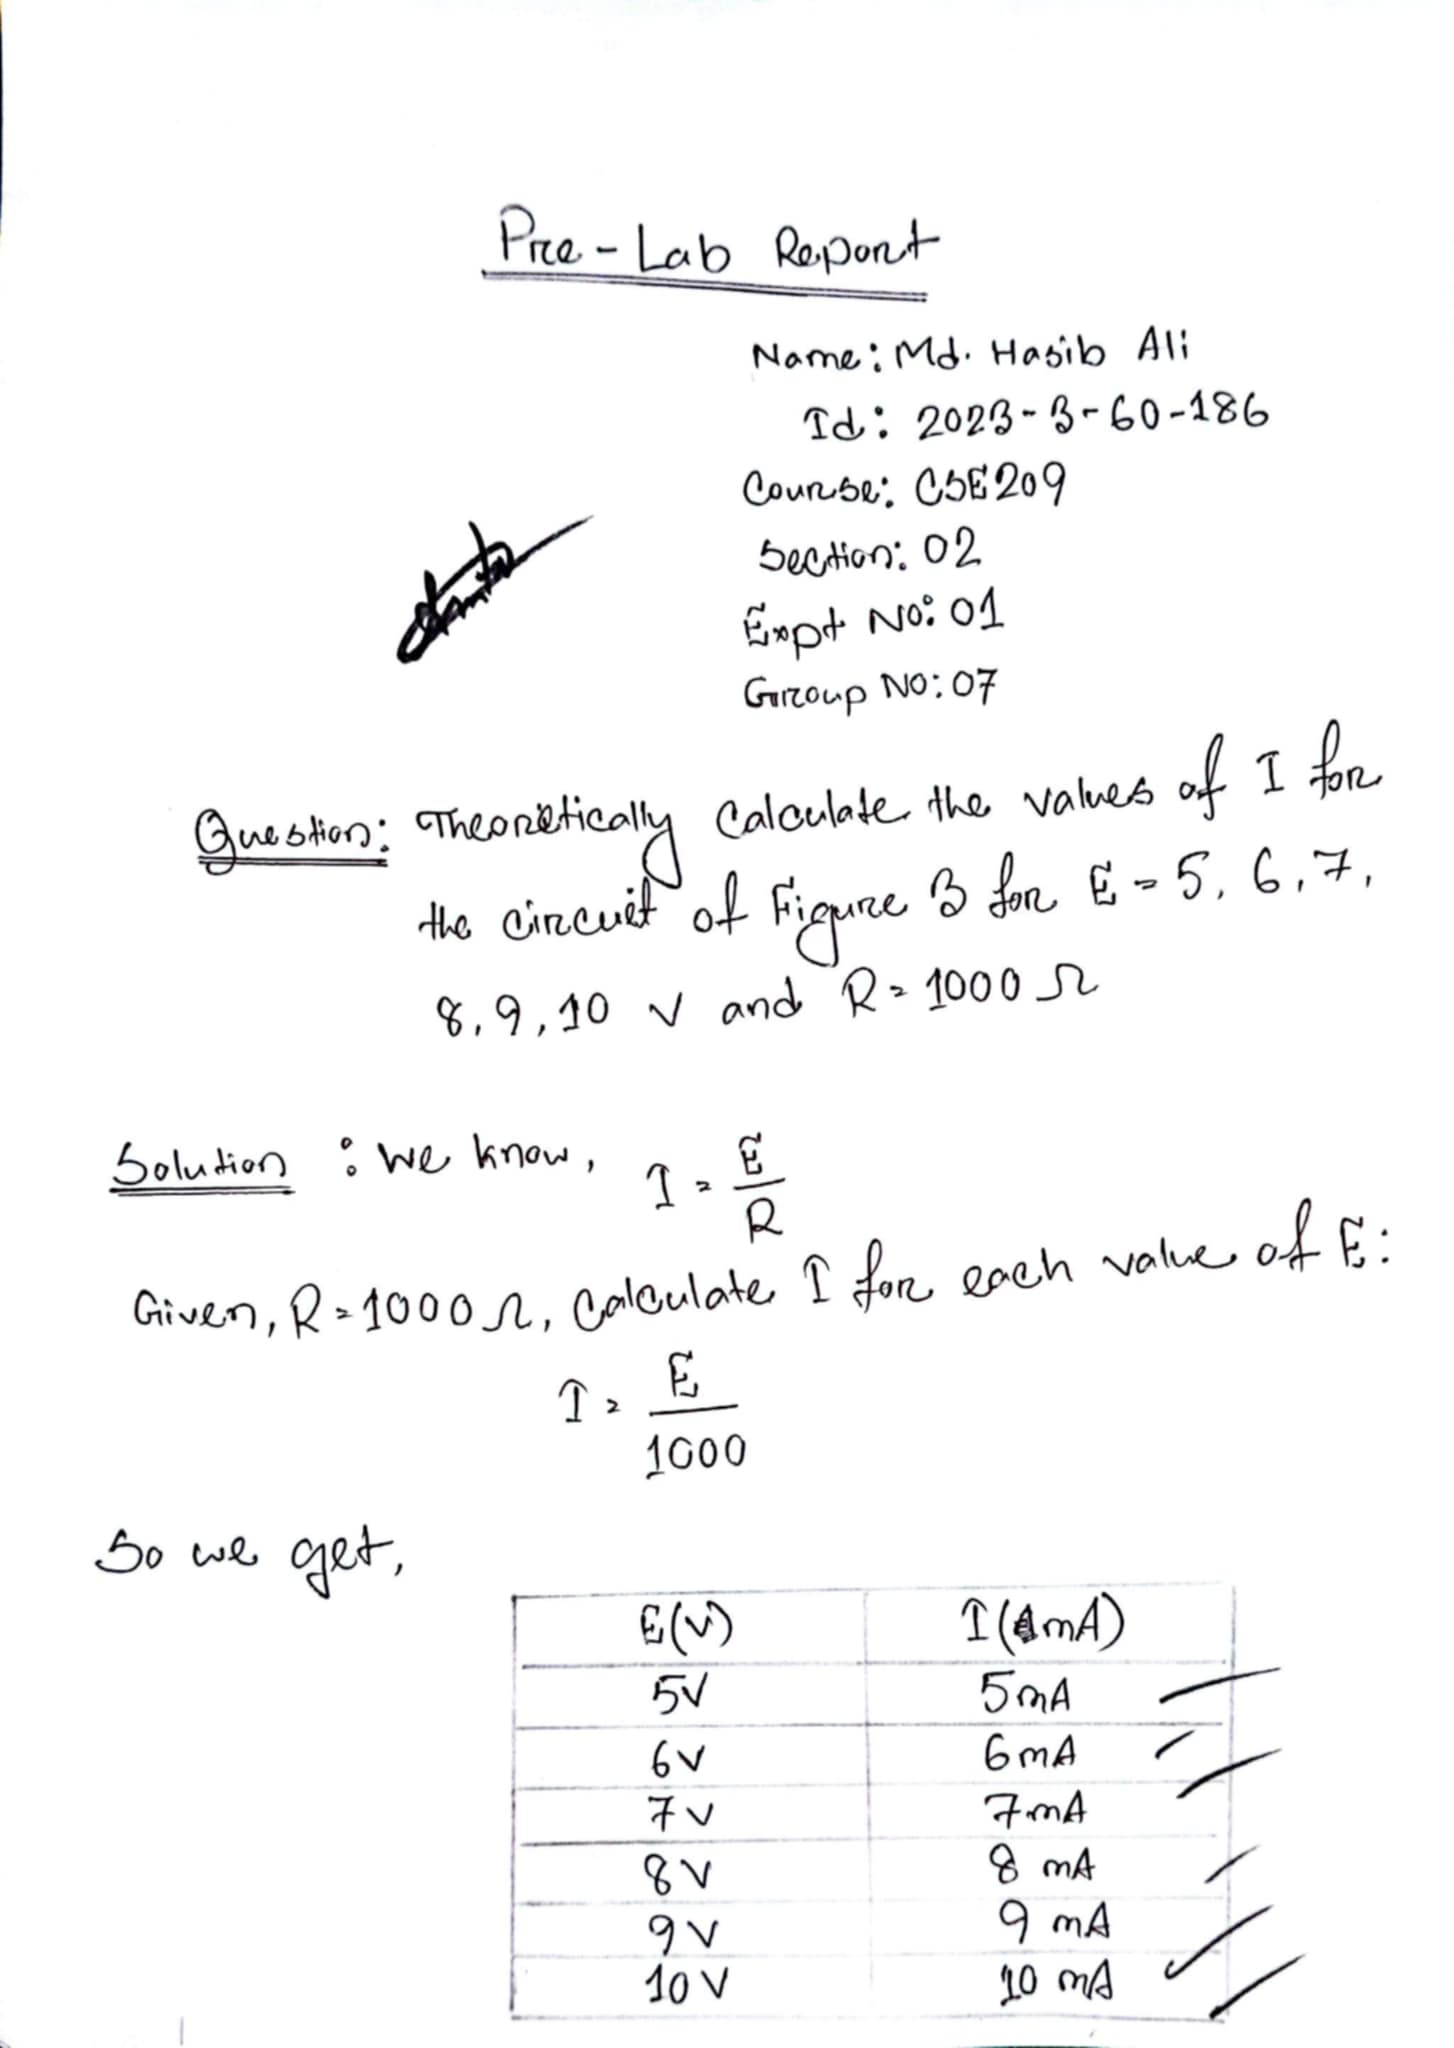 Pre-Lab Report
Name: Md. Hasib Ali
Id: 2023-3-60-186
Course: CSE209
Section: 02
Expt No: 01
Group No: 07
Question: Theoretically calculate the values of I for
the circuit of Figure 3 for E = 5, 6, 7,
8, 9, 10 V and R = 1000 Ω
Solution : We know, I = E/R
Given, R = 1000 Ω, Calculate I for each value of E:
I = E/1000
So we get,
E(V) I(mA)
5V 5mA
6V 6mA
7V 7mA
8V 8 mA
9V 9 mA
10V 10 mA